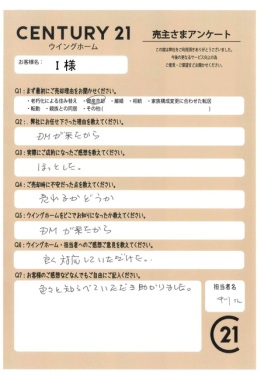 CENTURY 21
ウイングホーム
売主さまアンケート
この度は弊社をご利用頂きありがとうございました。
今後の更なるサービス向上の為
ご意見・ご要望をお聞かせください。
お客様名：
I 様
Q1：まず最初にご売却理由をお聞かせください。
・老朽化による住み替え ・資産売却 ・離婚 ・相続 ・家族構成変更に合わせた転居
・転勤 ・親族との同居 ・その他( )
Q2：弊社にお任せ下さった理由を教えてください。
DMが来たから
Q3：実際にご成約になったご感想を教えてください。
ほっとした。
Q4：ご売却時に不安だった点を教えてください。
売れるかどうか
Q5：ウイングホームをどこでお知りになったか教えてください。
DMが来たから
Q6：ウイングホーム・担当者へのご感想ご意見を教えてください。
良く対応していただけた。
Q7：お客様のご感想などなんでもご自由にご記入ください。
色々と知らべていただき助かりました。
担当者名
C21